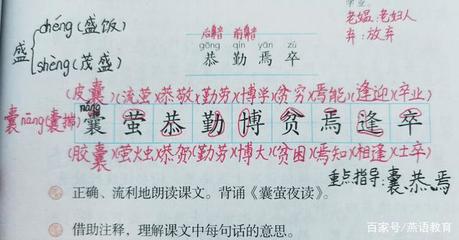 学业。
老媪:老妇人
弃:放弃
盛
chéng(盛饭)
shèng(茂盛)
后鼻音 前鼻音
gōng qín yān zú
恭 勤 焉 卒
(皮囊)(流萤)(恭敬)(勤劳)(博学)(贫穷)(焉能)(逢迎)(卒业)
囊nāng(囊揣)
náng
囊 萤 恭 勤 博 贫 焉 逢 卒
(胶囊)(萤火虫)(恭贺)(勤劳)(博大)(贫困)(焉知)(相逢)(士卒)
重点指导:囊、恭、焉
正确、流利地朗读课文。背诵《囊萤夜读》。
借助注释,理解课文中每句话的意思。
百家号/燕语教育